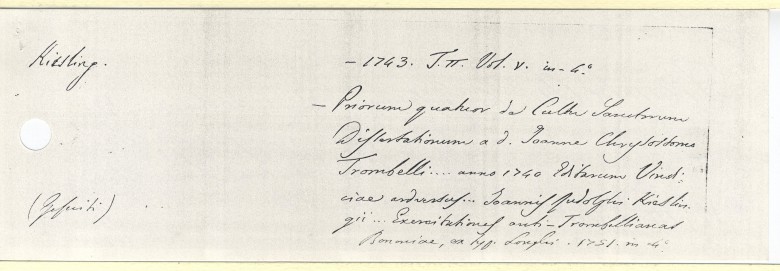 Kiesling.
- 1743. T.II. Vol. V. in-4.º
- Priorum quatuor de Cultu Sanctorum
Dissertationum a d. Joanne Chrysostomo
Trombelli.... anno 1740 Editarum Vindi-
ciae adversus... Joannis Rudolphi Kieslin-
gii... Exercitationes anti-Trombellianas
(Gesuiti)
Bononiae, ex typ. Longhi. 1751. in-4.º